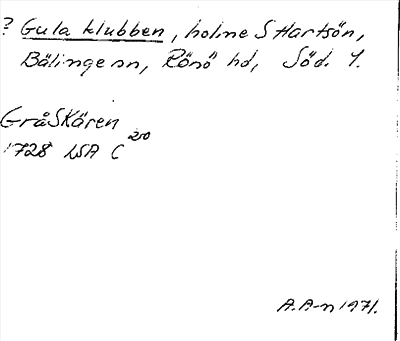 ? Gula klubben, holme S Hartsön,
Bälinge sn, Rönö hd, Söd. l.
GråSKären
1728 LSA C 20
A.A-n 1971.